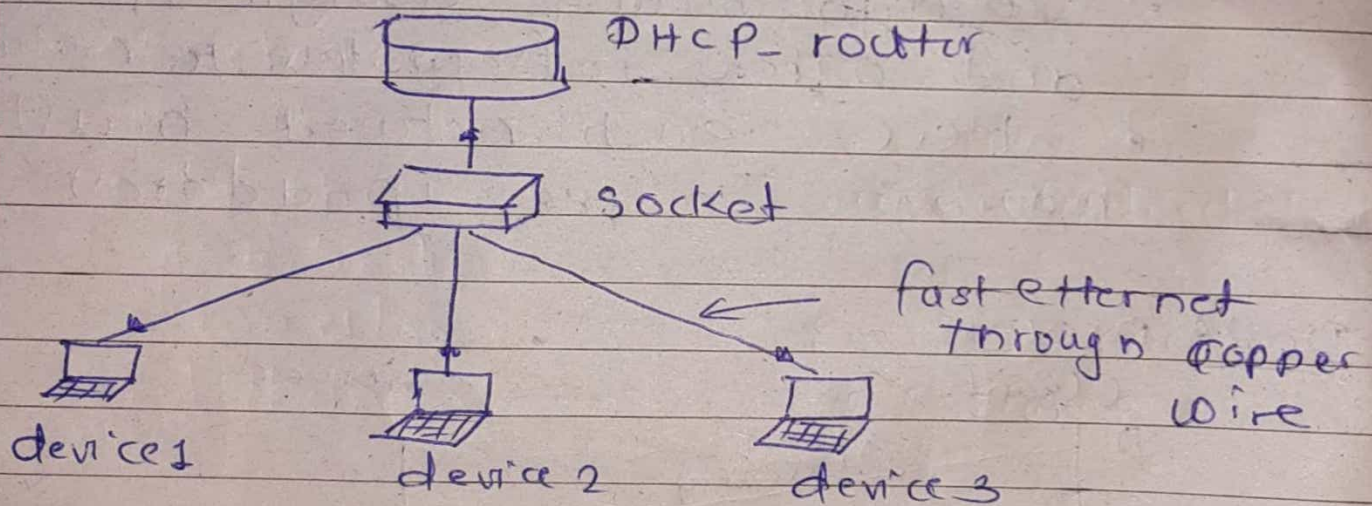 DHCP_ routter
socket
fast etternet
through copper
wire
device1
device 2
device 3